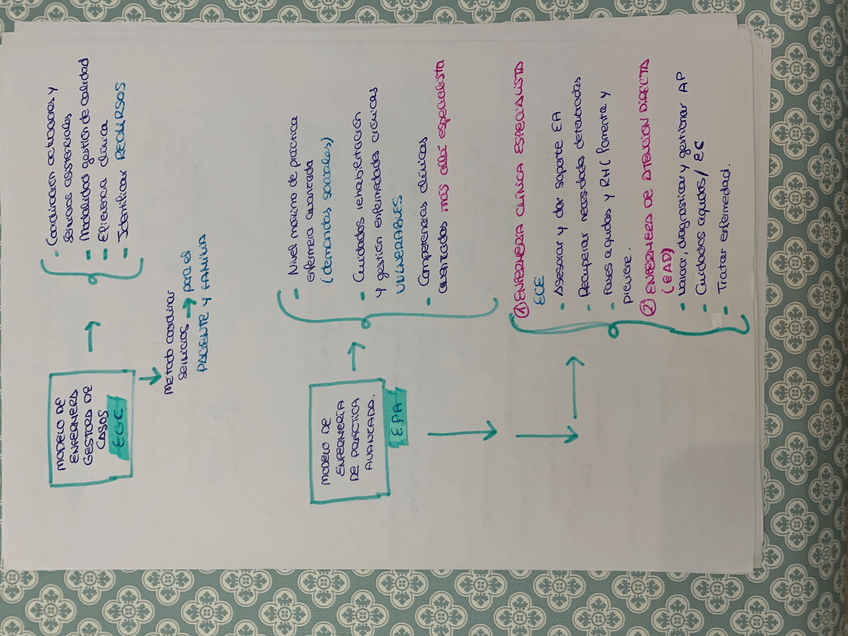 MODELO DE
ENFERMERA
GESTORA DE
CASOS
EGC
- Coordinacion actividades y
servicios asistenciales
- Modalidad gestión de calidad
- Eficiencia clinica
- Identificar RECURSOS
Metodo coordinar
servicios → para el
PACIENTE Y FAMILIA
MODELO DE
ENFERMERÍA
DE PRÁCTICA
AVANZADA.
EPA
- Nivel maximo de práctica
enfermera avanzada
(demandas sociales)
- Cuidados rehabilitación
y gestión enfermedades crónicas
VULNERABLES
- Competencias clínicas
avanzadas más allá especialista
① ENFERMERÍA CLÍNICA ESPECIALISTA
ECE
- Asesorar y dar soporte EA
- Recuperar necesidades deterioradas
- Fases agudas y RHC (fomenta y
previene.
② ENFERMERA DE ATENCION DIRECTA
(EAD)
- Valorar, diagnosticar y gestionar AP
- Cuidados agudos / EC
- Tratar enfermedad.